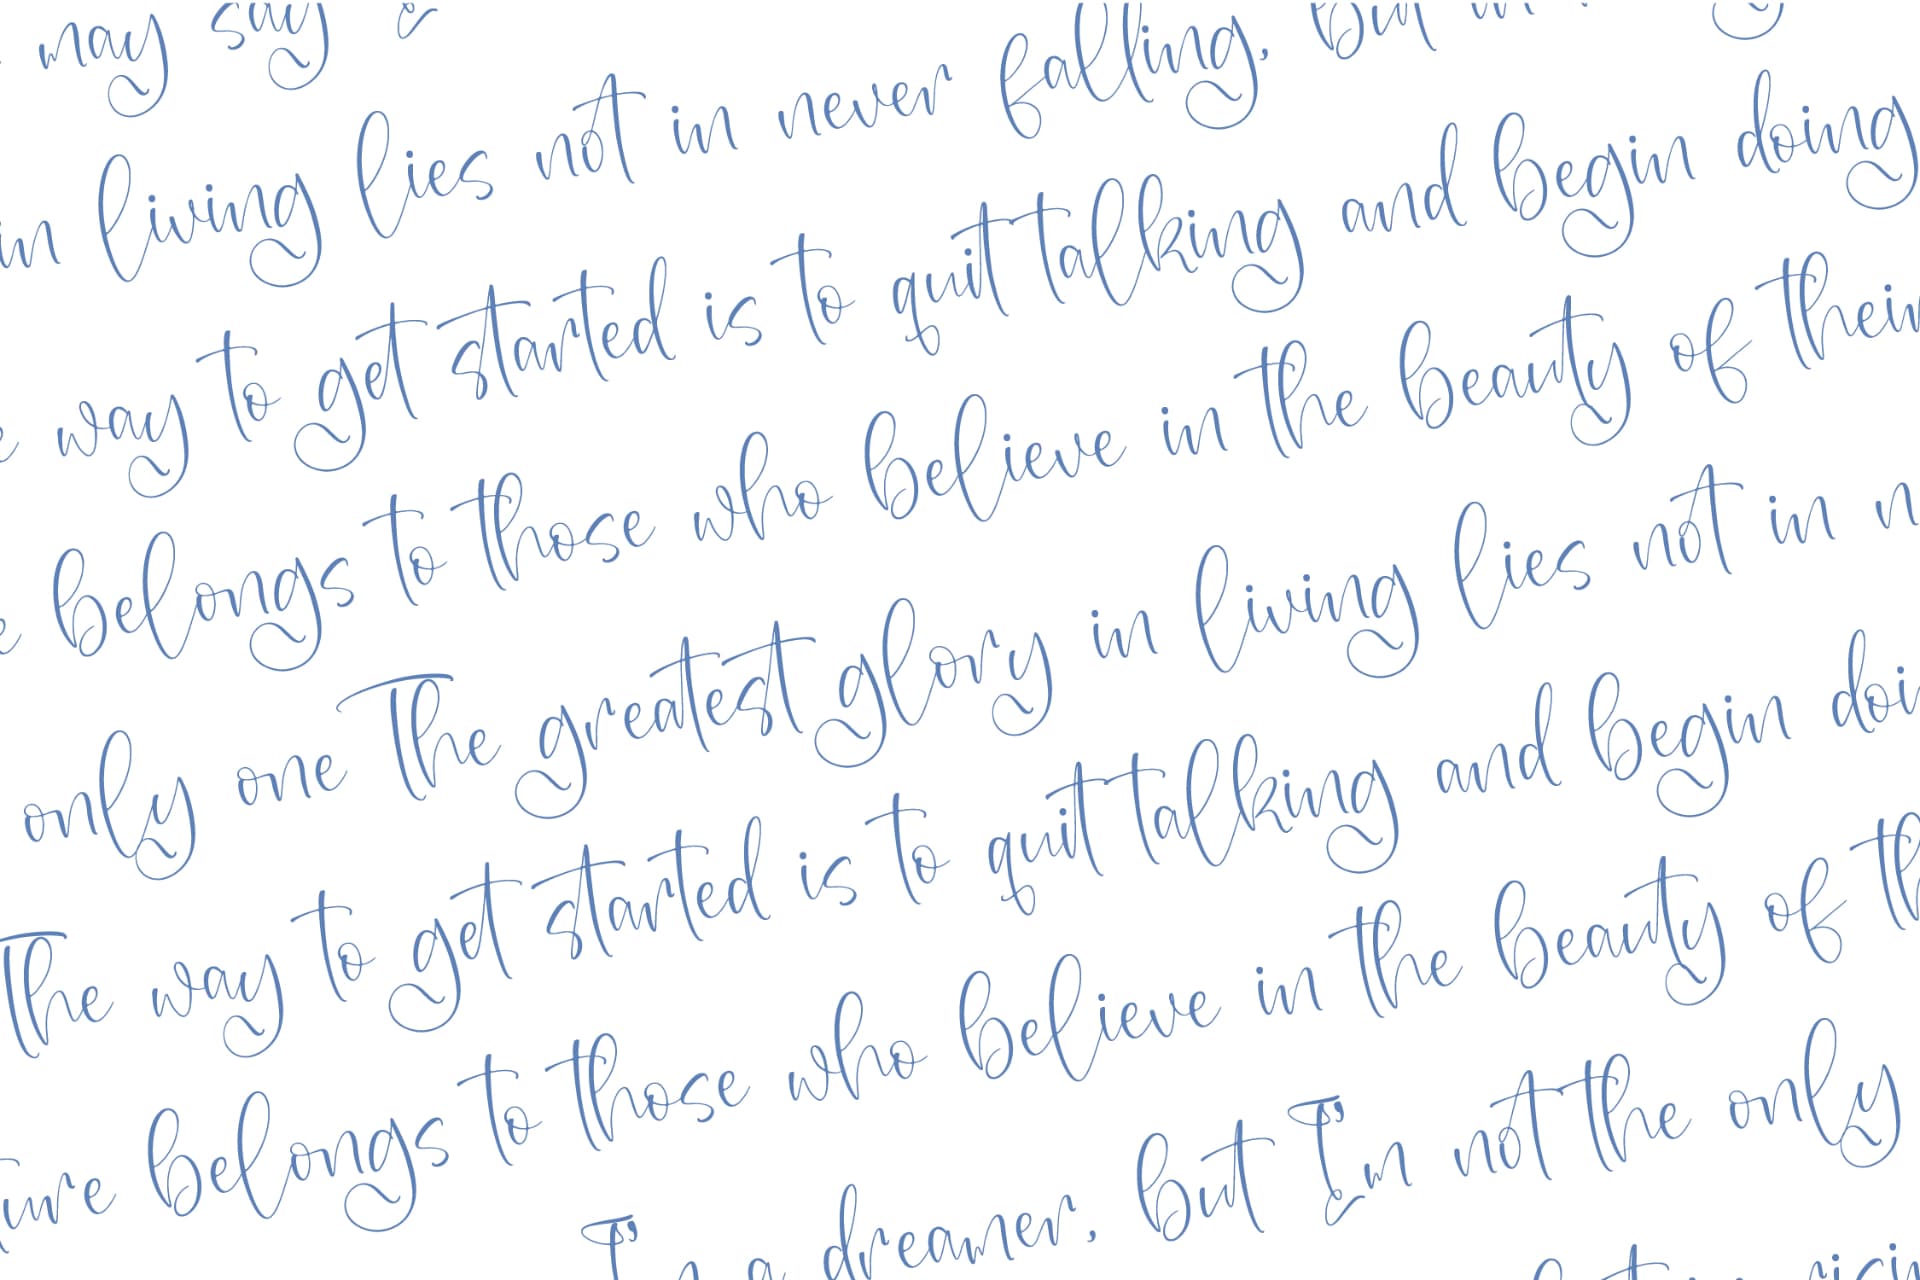 may say
in living lies not in never falling, but in
e way to get started is to quit talking and begin doing
e belongs to those who believe in the beauty of their
only one The greatest glory in living lies not in n
The way to get started is to quit talking and begin doi
ture belongs to those who believe in the beauty of th
I'm a dreamer, but I'm not the only